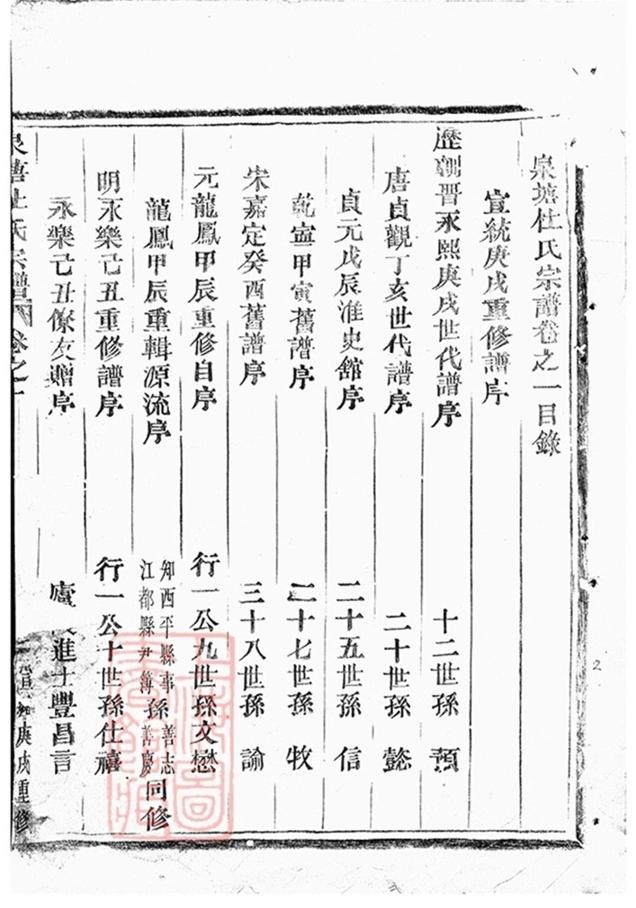 泉塘杜氏宗譜卷之一目錄
宣統庚戌重修譜序
歷朝晉永熙庚戌世代譜序 十二世孫 預
唐貞觀丁亥世代譜序 二十世孫 懿
貞元戊辰淮史館序 二十五世孫 信
乾寧甲寅舊譜序 二十七世孫 牧
宋嘉定癸酉舊譜序 三十八世孫 諭
元龍鳳甲辰重修自序 行一公九世孫文懋
龍鳳甲辰重輯源流序 知西平縣事孫善志 江都縣尹簿孫善慶 同修
明永樂己丑重修譜序 行一公十世孫仕禧
永樂己丑僚友贈序 廬 進士豐昌言
泉塘杜氏宗譜 卷之一 宣統庚戌重修
2